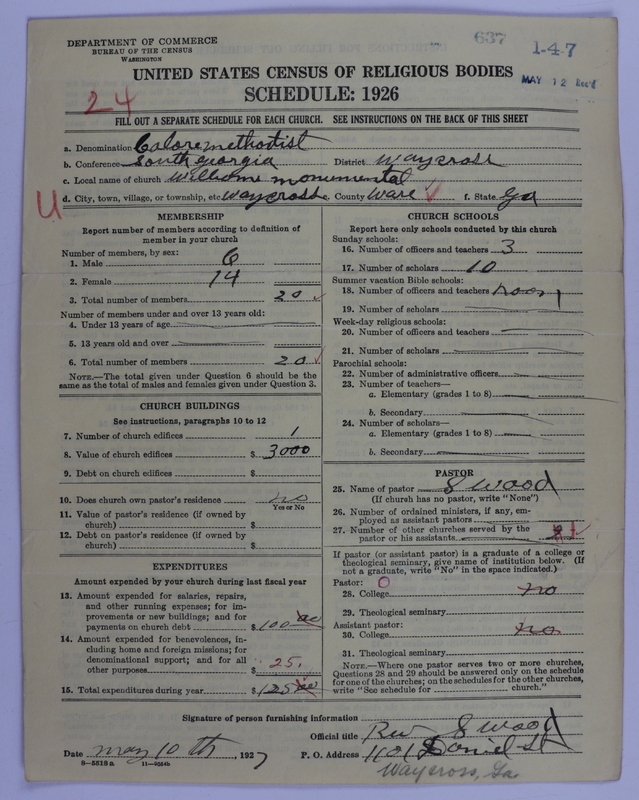 DEPARTMENT OF COMMERCE
BUREAU OF THE CENSUS
WASHINGTON
637
1-47
MAY 12 Rec'd
UNITED STATES CENSUS OF RELIGIOUS BODIES
SCHEDULE: 1926
24
FILL OUT A SEPARATE SCHEDULE FOR EACH CHURCH. SEE INSTRUCTIONS ON THE BACK OF THIS SHEET
a. Denomination Calore methodist
b. Conference South georgia District waycross
c. Local name of church Williams monumental
U
d. City, town, village, or township, etc. Waycross e. County Ware f. State Ga
MEMBERSHIP
Report number of members according to definition of
member in your church
Number of members, by sex:
1. Male 6
2. Female 14
3. Total number of members 20
Number of members under and over 13 years old:
4. Under 13 years of age
5. 13 years old and over
6. Total number of members 20
NOTE.—The total given under Question 6 should be the
same as the total of males and females given under Question 3.
CHURCH BUILDINGS
See instructions, paragraphs 10 to 12
7. Number of church edifices 1
8. Value of church edifices $ 3000
9. Debt on church edifices $
10. Does church own pastor's residence no
Yes or No
11. Value of pastor's residence (if owned by
church) $
12. Debt on pastor's residence (if owned by
church) $
EXPENDITURES
Amount expended by your church during last fiscal year
13. Amount expended for salaries, repairs,
and other running expenses; for im-
provements or new buildings; and for
payments on church debt $ 100 00
14. Amount expended for benevolences, in-
cluding home and foreign missions; for
denominational support; and for all
other purposes $ 25.
15. Total expenditures during year $ 125 00
CHURCH SCHOOLS
Report here only schools conducted by this church
Sunday schools:
16. Number of officers and teachers 3
17. Number of scholars 10
Summer vacation Bible schools:
18. Number of officers and teachers
19. Number of scholars
Week-day religious schools:
20. Number of officers and teachers
21. Number of scholars
Parochial schools:
22. Number of administrative officers
23. Number of teachers—
a. Elementary (grades 1 to 8)
b. Secondary
24. Number of scholars—
a. Elementary (grades 1 to 8)
b. Secondary
PASTOR
25. Name of pastor S wood
(If church has no pastor, write "None")
26. Number of ordained ministers, if any, em-
ployed as assistant pastors
27. Number of other churches served by the
pastor or his assistants 1
If pastor (or assistant pastor) is a graduate of a college or
theological seminary, give name of institution below. (If
not a graduate, write "No" in the space indicated.)
Pastor: O
28. College no
29. Theological seminary
Assistant pastor:
30. College no
31. Theological seminary
NOTE.—Where one pastor serves two or more churches,
Questions 28 and 29 should be answered only on the schedule
for one of the churches; on the schedules for the other churches,
write "See schedule for church."
Signature of person furnishing information
Official title Rev S wood
Date may 10 th, 1927 P. O. Address 1101 Daniel St
8—5518a 11—9354b
Waycross, Ga.